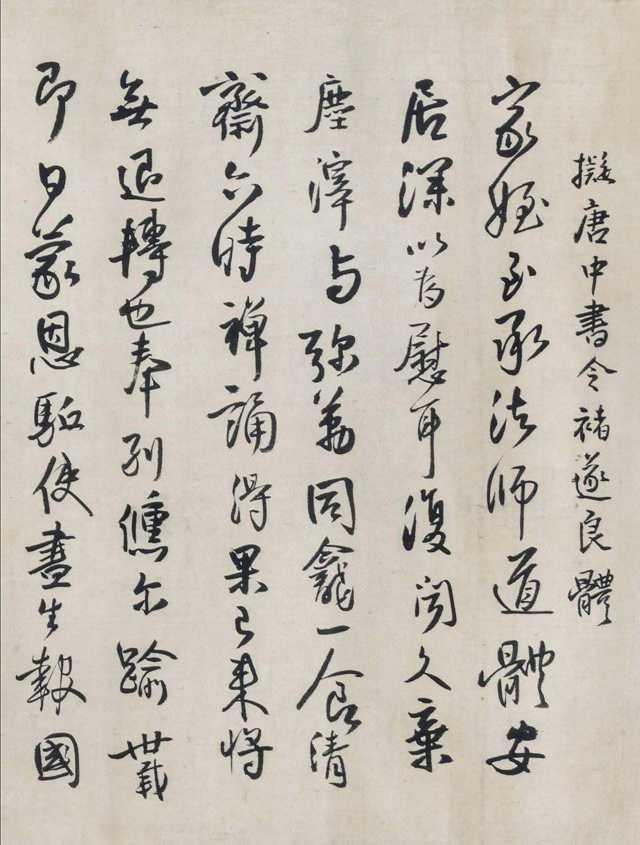 擬唐中書令褚遂良體
家姪至承法師道體安
居深以為慰耳復聞久棄
塵滓与弥勒同龕一食清
齋六時禪誦得果已来將
無退轉也奉別儵尔踰卅載
即日蒙恩駈使盡生報國